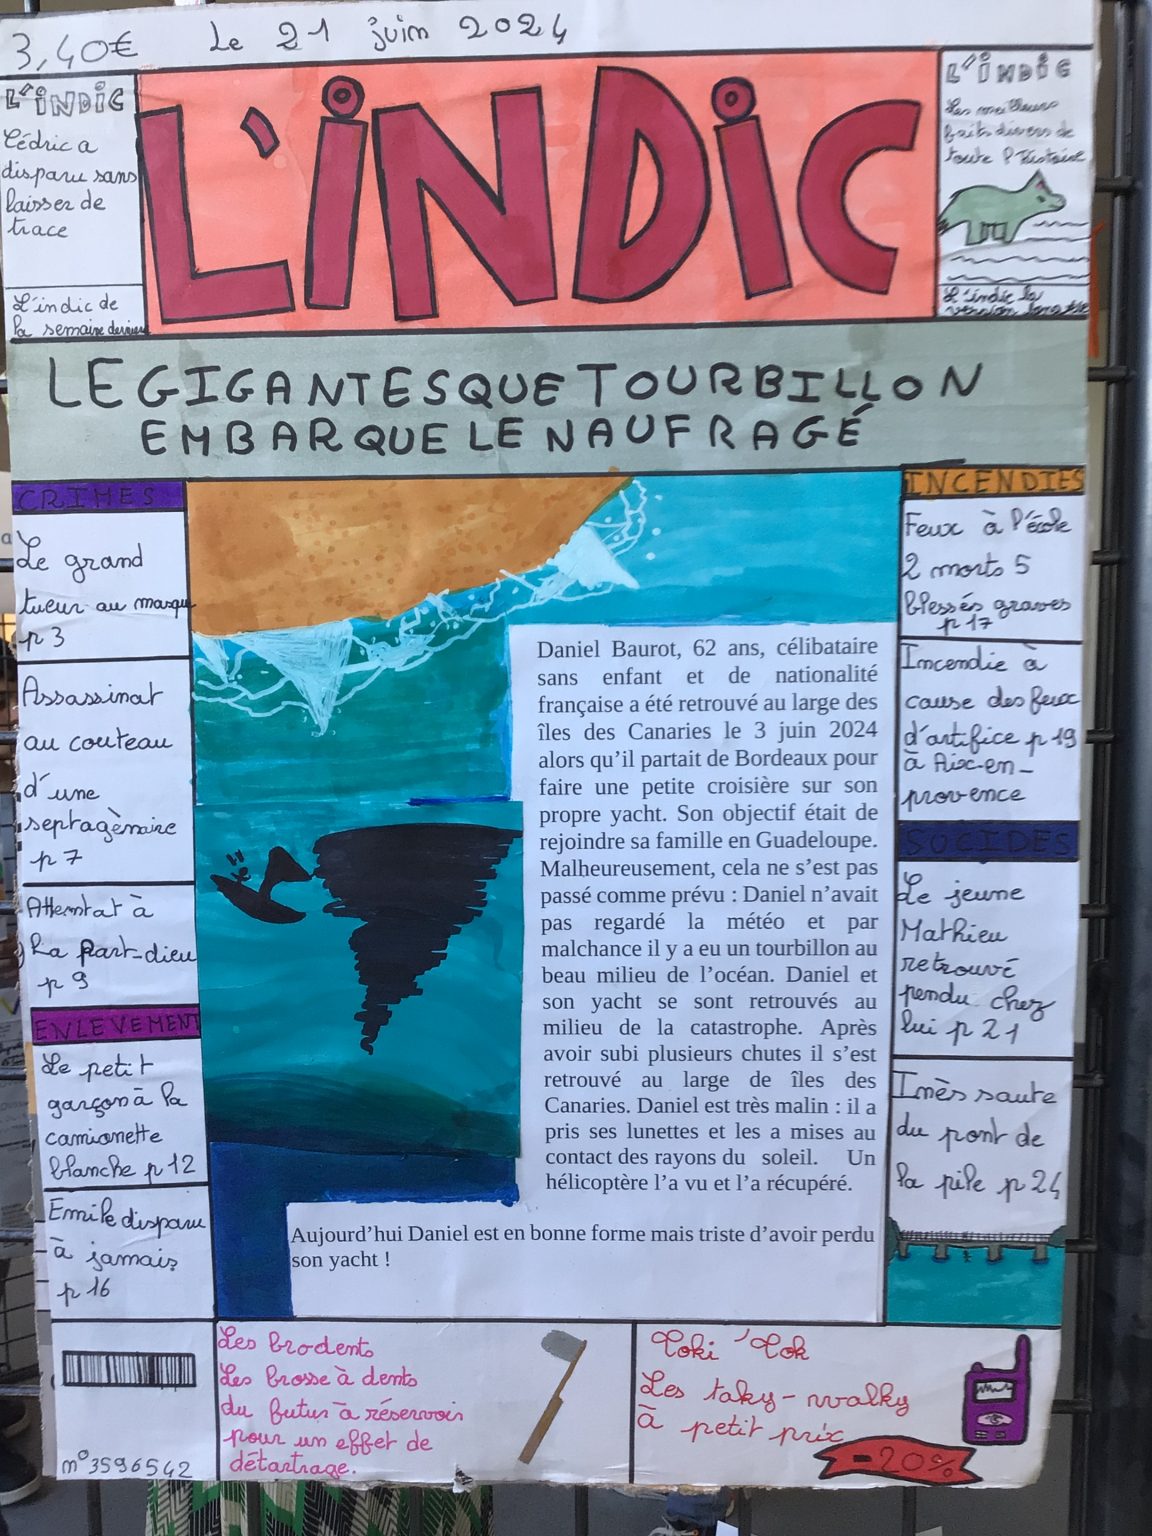 3,40€
Le 21 juin 2024
L'INDIC
Cédric a
disparu sans
laisser de
trace
L'indic de
la semaine dernière
L'INDIC
L'INDIC
Les meilleurs
faits divers de
toute l'Histoire
L'indic la
version
LE GIGANTESQUE TOURBILLON
EMBARQUE LE NAUFRAGÉ
CRIMES
Le grand
tueur au masque
p 3
Assassinat
au couteau
d'une
septagènaire
p 7
Attentat à
La part-dieu
p 9
ENLEVEMENT
Le petit
garçon à la
camionette
blanche p 12
Emile disparu
à jamais
p 16
Daniel Baurot, 62 ans, célibataire
sans enfant et de nationalité
française a été retrouvé au large des
îles des Canaries le 3 juin 2024
alors qu'il partait de Bordeaux pour
faire une petite croisière sur son
propre yacht. Son objectif était de
rejoindre sa famille en Guadeloupe.
Malheureusement, cela ne s'est pas
passé comme prévu : Daniel n'avait
pas regardé la météo et par
malchance il y a eu un tourbillon au
beau milieu de l'océan. Daniel et
son yacht se sont retrouvés au
milieu de la catastrophe. Après
avoir subi plusieurs chutes il s'est
retrouvé au large de îles des
Canaries. Daniel est très malin : il a
pris ses lunettes et les a mises au
contact des rayons du soleil. Un
hélicoptère l'a vu et l'a récupéré.
Aujourd'hui Daniel est en bonne forme mais triste d'avoir perdu
son yacht !
INCENDIES
Feux à l'école
2 morts 5
blessés graves
p 17
Incendie à
cause des feux
d'artifice p 19
à Aix-en-
provence
SUCIDES
Le jeune
Mathieu
retrouvé
pendu chez
lui p 21
Inès saute
du pont de
la pile p 24
n°3596542
Les brodents
Les brosse à dents
du futur à réservoir
pour un effet de
détartrage.
Toki Tok
Les taky-walky
à petit prix
-20%